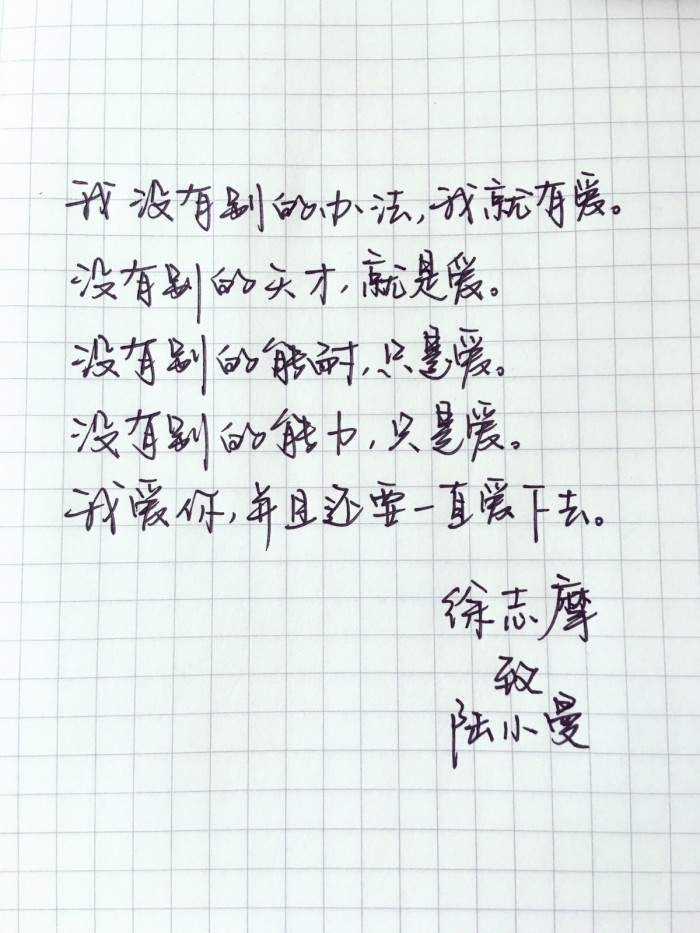 我没有别的办法,我就有爱。
没有别的天才,就是爱。
没有别的能耐,只是爱。
没有别的能力,只是爱。
我爱你,并且还要一直爱下去。
徐志摩
致
陆小曼